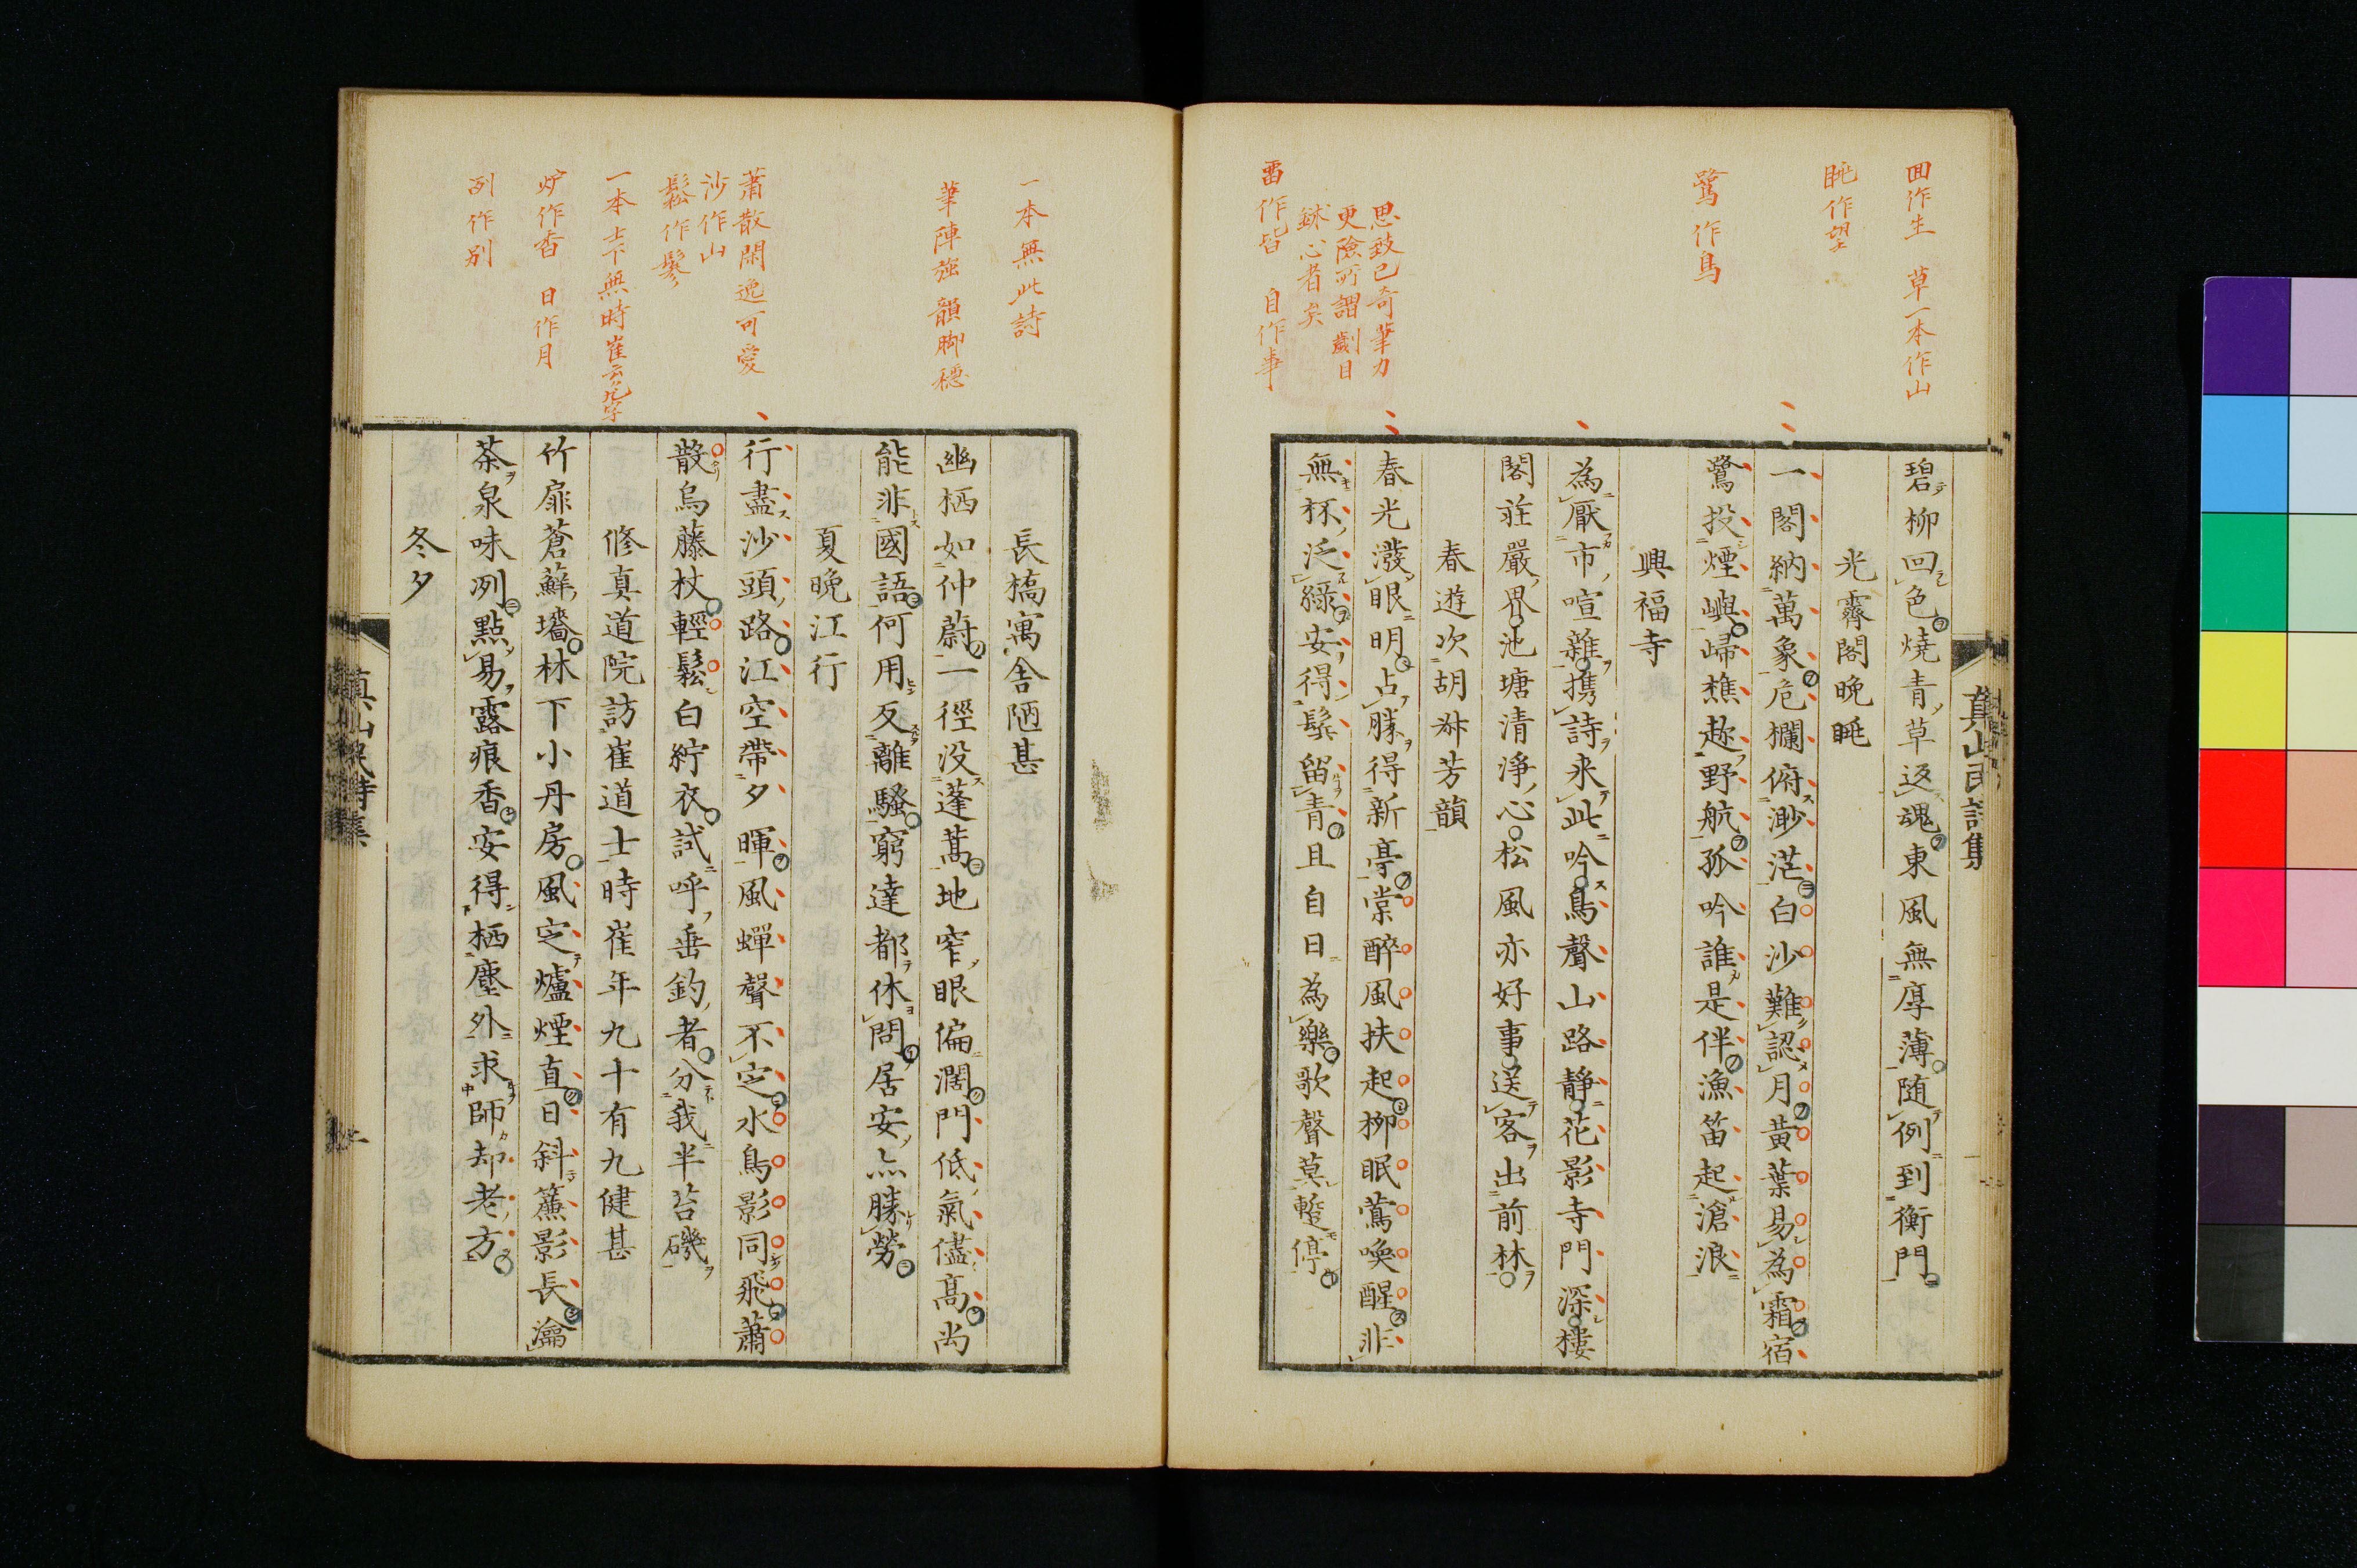 回作生 草一本作山
眺作望
鷺作鳥
思致已奇筆力
更險所謂劌目
鉥心者矣
畱作皆 自作事
真山民詩集
碧柳回色燒青草返魂東風無厚薄随例到衡門
光霽閣晚眺
一閣納萬象危欄俯渺茫白沙難認月黃葉易為霜宿
鷺投煙嶼歸樵趂野航孤吟誰是伴漁笛起滄浪
興福寺
為厭市喧雜携詩来此吟鳥聲山路靜花影寺門深樓
閣莊嚴界池塘清淨心松風亦好事送客出前林
春遊次胡紏芳韻
春光潑眼明占勝得新亭棠醉風扶起柳眠鶯喚醒非
無杯泛綠安得鬂留青且自日為樂歌聲莫蹔停
一本無此詩
筆陣強韻脚穩
蕭散閑逸可愛
沙作山
鬆作鬖
一本士下無時崔云々九字
炉作香 日作月
冽作別
長橋寓舍陋甚
幽栖如仲蔚一徑没蓬蒿地窄眼偏濶門低氣儘高尚
能非國語何用反離騷窮達都休問居安亦勝勞
夏晚江行
行盡沙頭路江空帶夕暉風蟬聲不定水鳥影同飛蕭
散烏藤杖輕鬆白紵衣試呼垂釣者分我半苔磯
修真道院訪崔道士時崔年九十有九健甚
竹扉蒼蘚墻林下小丹房風定爐煙直日斜簾影長瀹
茶泉味冽點易露痕香安得栖塵外求師却老方
冬夕
真山民詩集